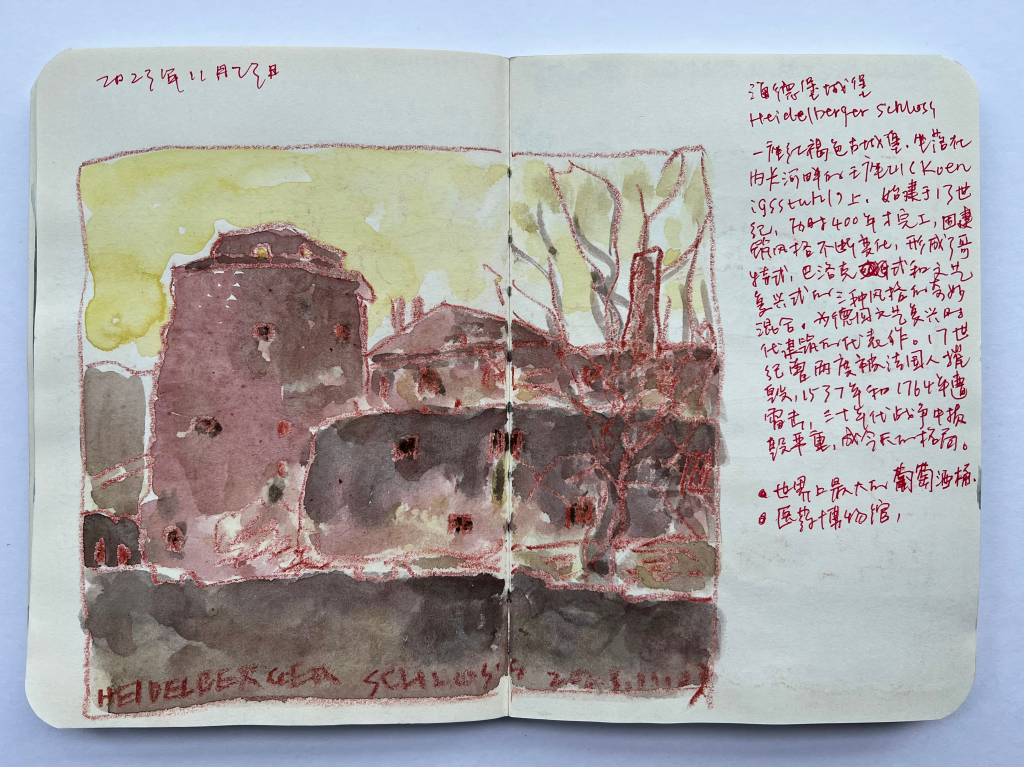 2023年11月23日
海德堡城堡
Heidelberger Schloss
一座红褐色古城堡，坐落在
内卡河畔的王座山(Koen
igsstuhl)上，始建于13世
纪，历时400年才完工，因建
筑风格不断变化，形成了哥
特式，巴洛克式和文艺
复兴式的三种风格的奇妙
混合，为德国文艺复兴时
代建筑的代表作。17世
纪曾两度被法国人摧
毁，1537年和1764年遭
雷击，三十年代战争中损
毁严重，成今天的格局。
世界上最大的葡萄酒桶.
医药博物馆，
HEIDELBERGER SCHLOSS 2023.11.23